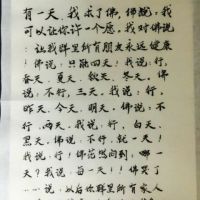 有一天，我求了佛，佛说：我
可以让你许一个愿。我对佛说
：让我群里所有朋友永远健康
！佛说：只能四天！我说：行，
春天、夏天、秋天、冬天。佛
说：不行，三天。我说：行，
昨天、今天、明天。佛说：不
行，两天。我说：行，白天、
黑天。佛说：不行，就一天！
我说：行！佛茫然问到：哪一
天？我说：每一天！！佛哭了
……说：以后你群里所有家人